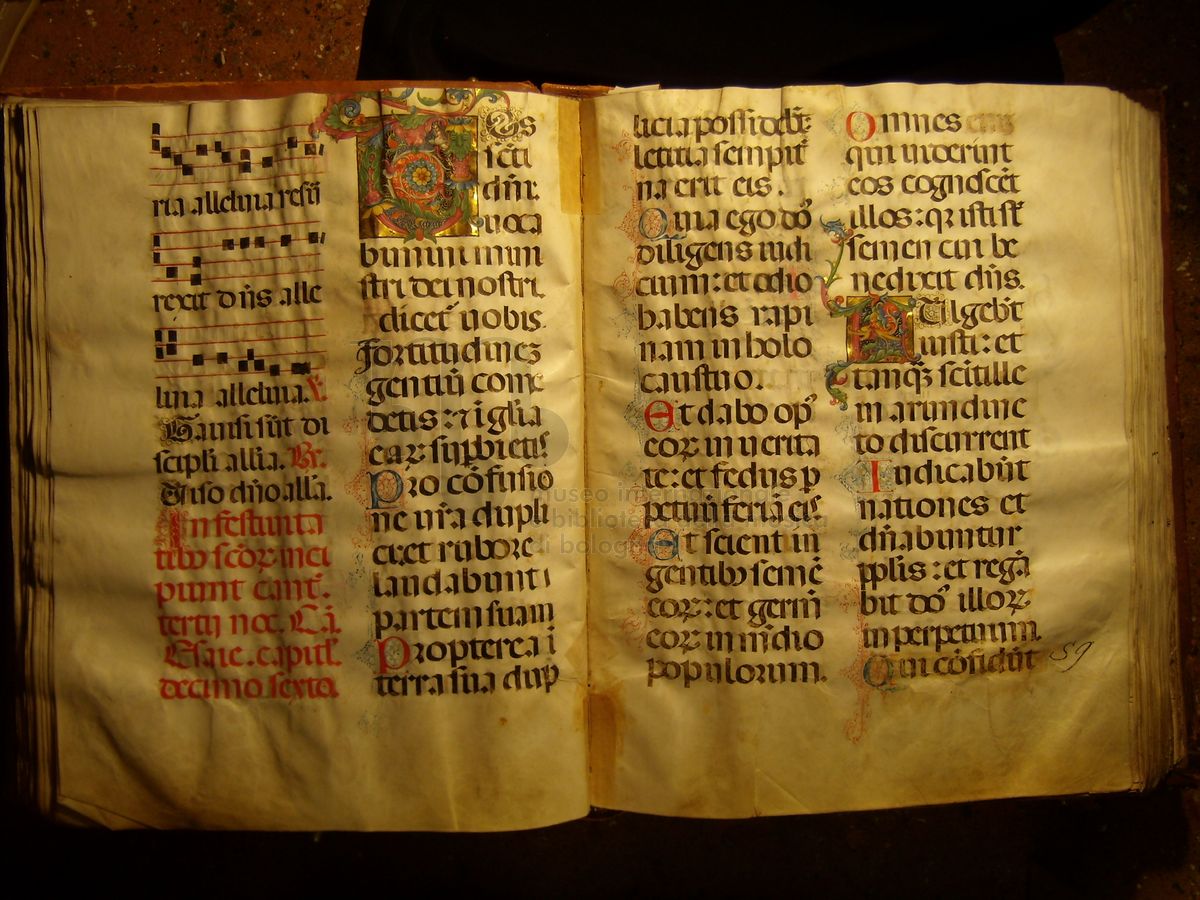 ria alleluia resu
rexit dn̄s alle
luia alleluia. ℣.
Gauisi sūt di
scipli allīa. R̄.
Uiso dn̄o allā.
In festiuita
tibꝫ scōꝝ inci
piunt cant̄.
tertij noc̄. Cā.
Esaie. capitł.
decimo sexto.
Uos
scti
dn̄i.
uoca
bimini mini
stri dei nostri.
dicet᷑ uobis.
Fortitudineꝫ
gentiū come
detis: ⁊ i glīa
eaꝝ supbietis.
Pro cōfusio
ne ur̄a dupli
ci: et rubore
laudabunt i
partem suam
Propterea i
terra sua dup
licia possidebt̄:
letitia sempit̄
na erit eis.
Quia ego dō
diligens iudi
cium: et odio
habens rapi
nam in holo
caustuo.
Et dabo op̄
eoꝝ in uerita
te: et fedus p
petuū feriā eis.
Et scient in
gentibꝫ semē
eoꝝ: et germ̄
eoꝝ in mēdio
populorum.
Omnes
qui uiderint
eos cognoscēt
illos: qꝛ isti st̄
semen cui be
nedixit dn̄s.
Fulgebt̄
iusti: et
tanqꝫ scītille
in arundine
to discurrent
Iudicabūt
nationes et
dn̄abuntur
pplis: et regā
bit dō illoꝝ
in perpetuum.
Qui cōfidūt
59
museo internazionale
e biblioteca della musica
di bologna